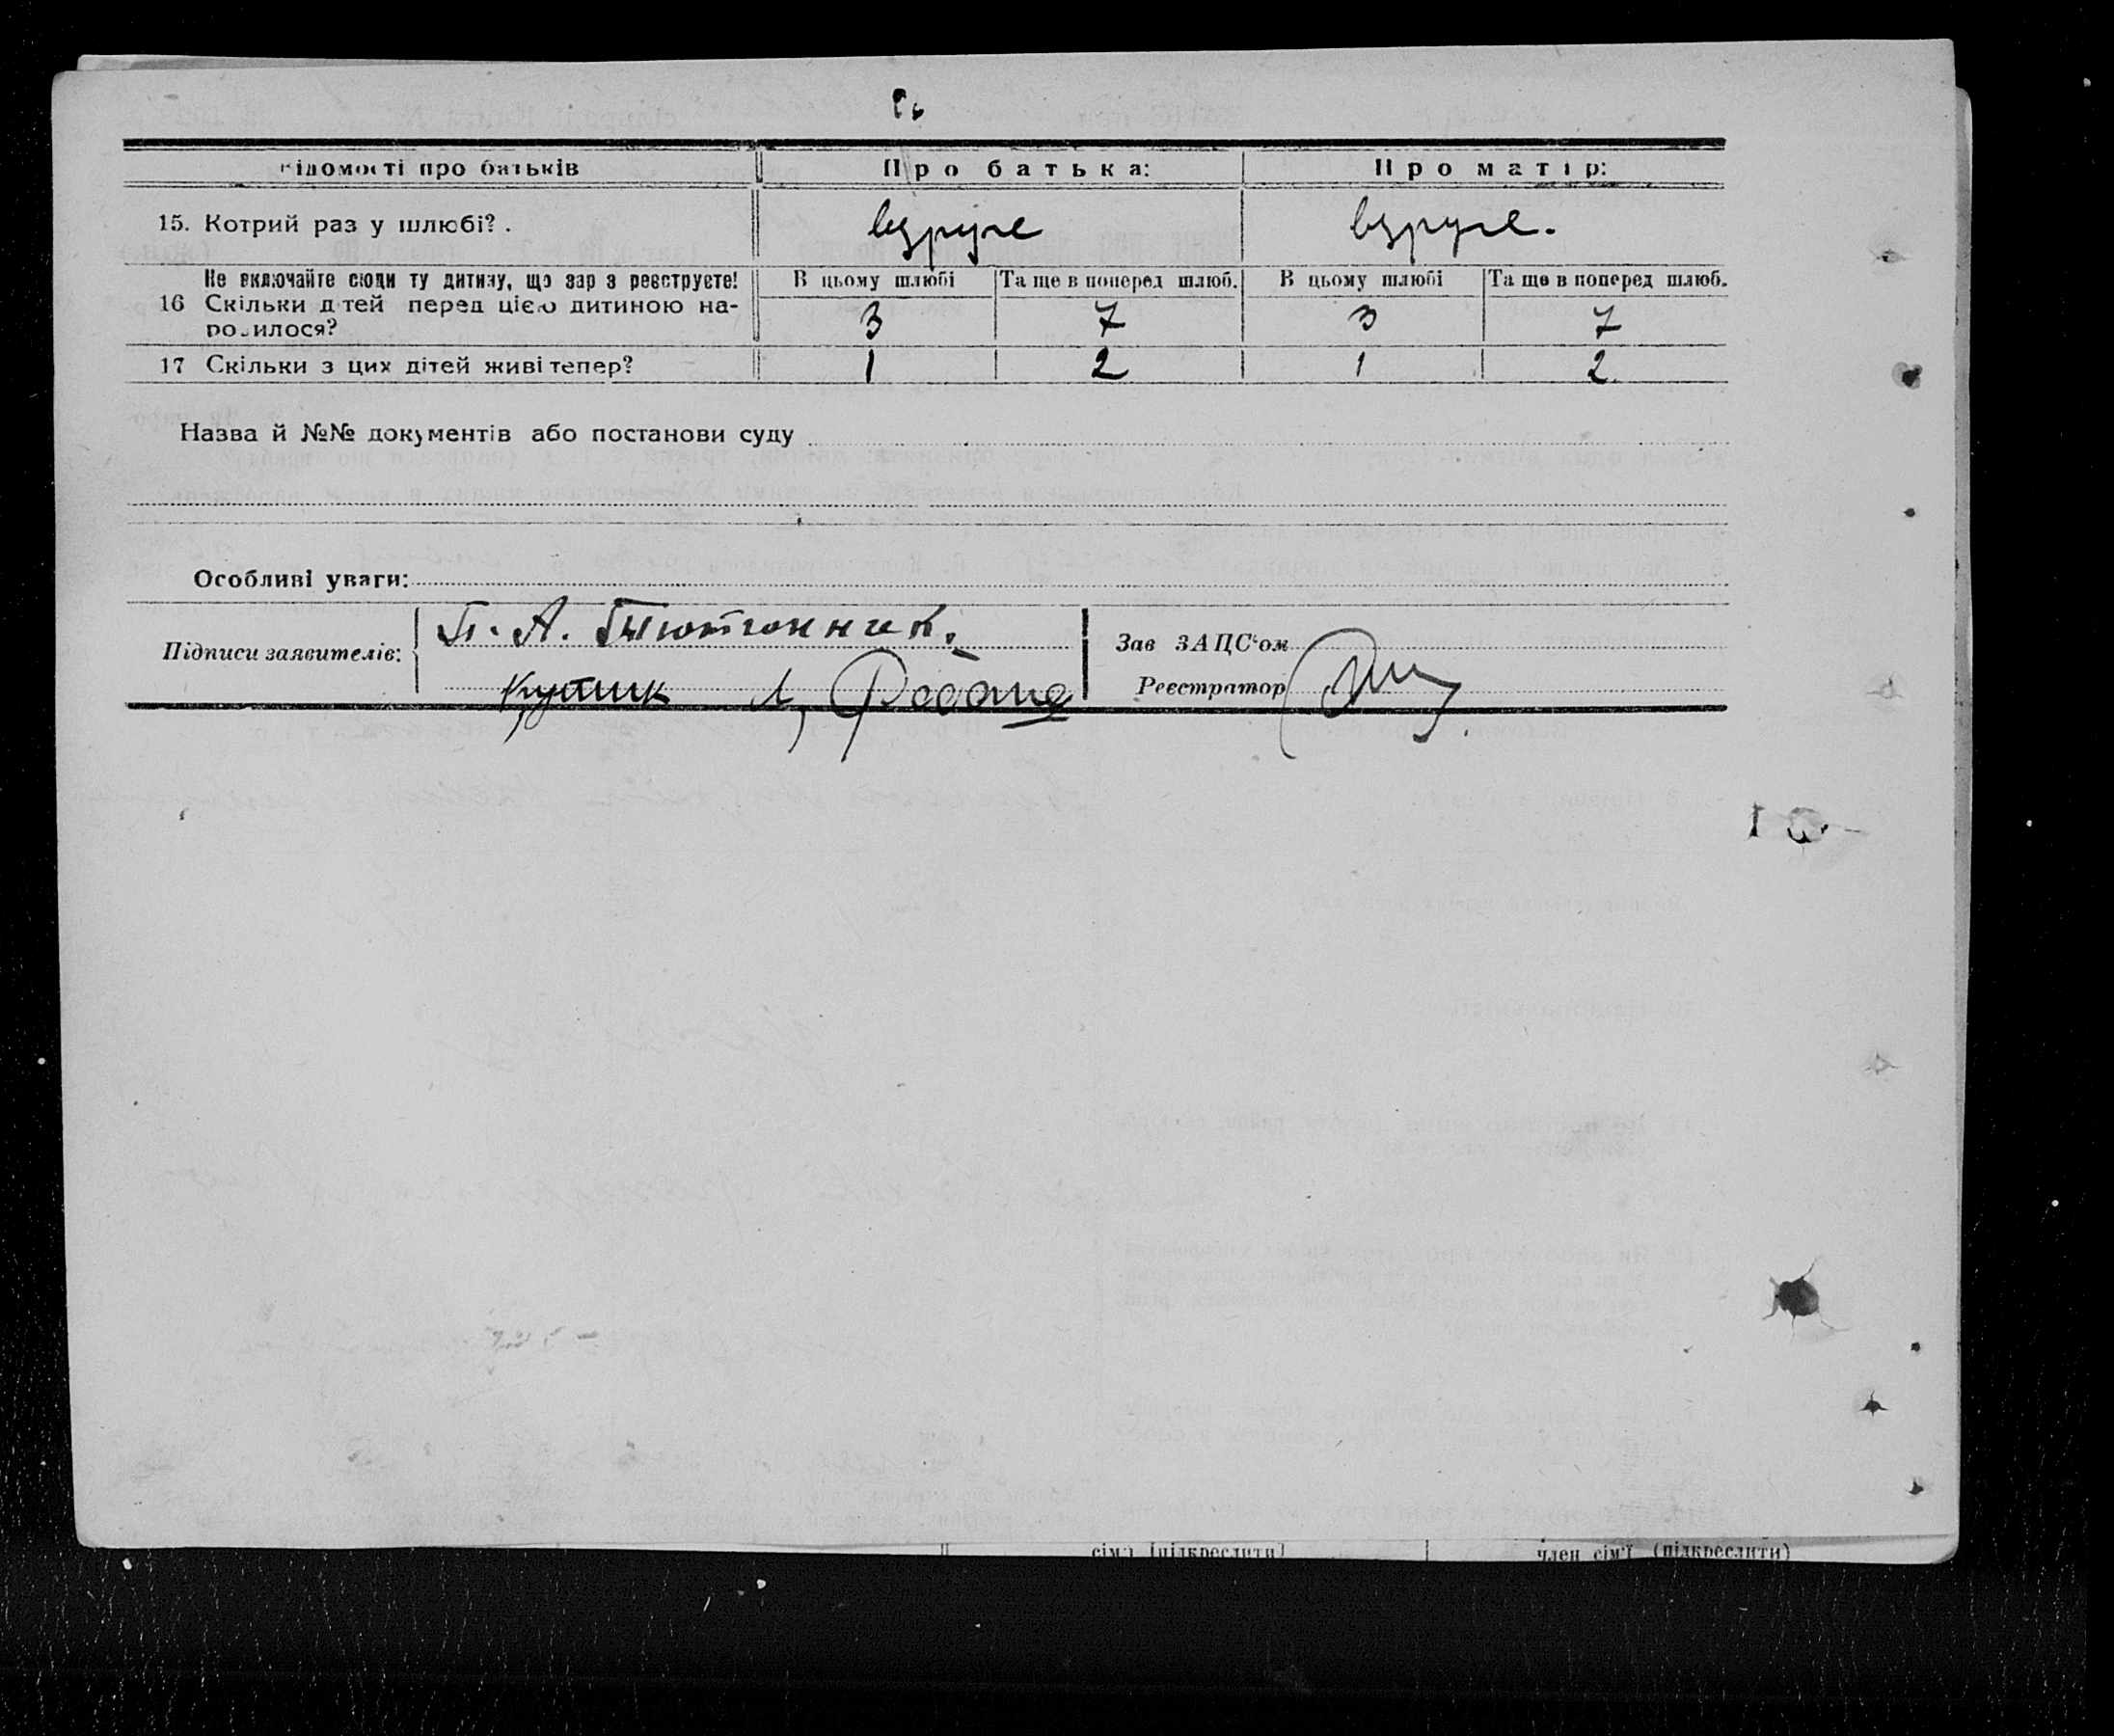 Відомості про батьків Про батька: Про матір:
15. Котрий раз у шлюбі? . вдруге вдруге.
Не включайте сюди ту дитину, що зар з реєструєте! В цьому шлюбі Та ще в поперед шлюб. В цьому шлюбі Та ще в поперед шлюб.
16 Скільки дітей перед цією дитиною на-
родилося? 3 7 3 7
17 Скільки з цих дітей живі тепер? 1 2 1 2
Назва й №№ документів або постанови суду
Особливі уваги:
Підписи заявителів: П. А. Тютюнник.
Кутик
Зав ЗАЦС‘ом
Реєстратор
сім'ї [підкреслити] член сім'ї (підкреслити)